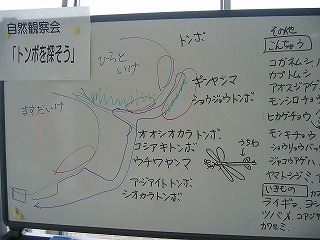 自然観察会
「トンボを探そう」
ひろっと
いけ
ますだいけ
トンボ
ギンヤンマ
ショウジョウトンボ
オオシオカラトンボ
コシアキトンボ
ウチワヤンマ
アジアイトトンボ
シオカラトンボ
うちわ
その他
こんちゅう
コガネムシ
カブトムシ
アオスジアゲ
モンシロチョウ
ヒカゲチョウ
モンキチョウ
ショウリョウバッ
ジャコウアゲハ
ヤマトシジミ
いきもの
ライギョ
ツバメ、コアジ
カワセミ